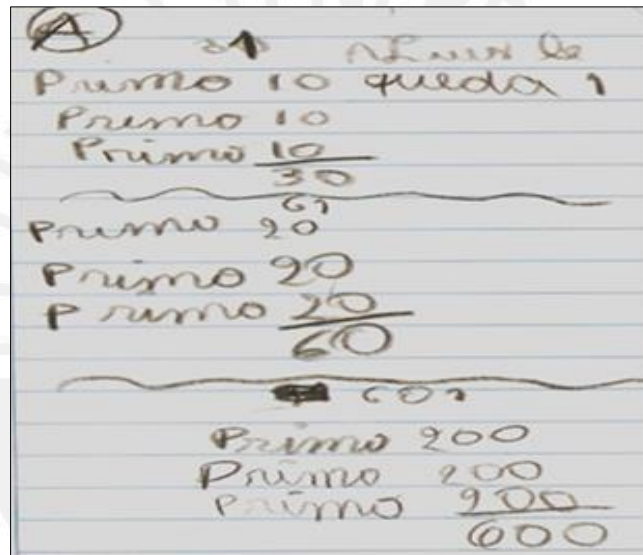 A
31 A Luis le
Primo 10 queda 1
Primo 10
Primo 10
30
61
Primo 20
Primo 20
Primo 20
60
601
Primo 200
Primo 200
Primo 200
600